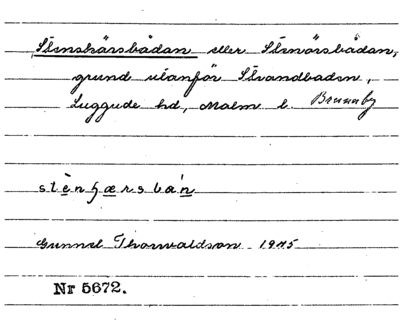 Stenskärsbådan eller Stenörsbådan,
grund utanför Strandbaden,
Luggude hd, Malm l. Brunnby
stènʃærsbán
Gunnel Thorvaldson 1945
Nr 5672.